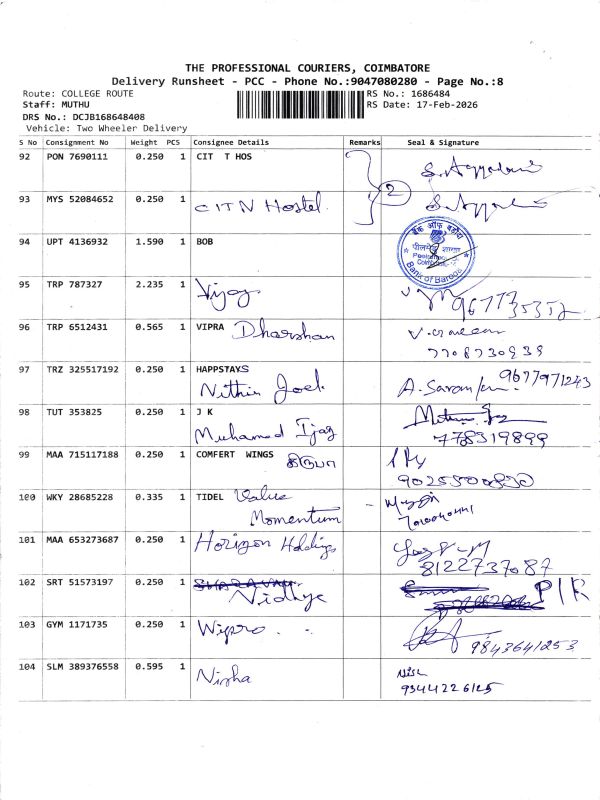 THE PROFESSIONAL COURIERS, COIMBATORE
Delivery Runsheet - PCC - Phone No.:9047080280 - Page No.:8
Route: COLLEGE ROUTE RS No.: 1686484
Staff: MUTHU RS Date: 17-Feb-2026
DRS No.: DCJB168648408
Vehicle: Two Wheeler Delivery
S No Consignment No Weight PCS Consignee Details Remarks Seal & Signature
92 PON 7690111 0.250 1 CIT T HOS
2
93 MYS 52084652 0.250 1 CITN Hostel
94 UPT 4136932 1.590 1 BOB
बैंक ऑफ बड़ौदा
Bank of Baroda
95 TRP 787327 2.235 1 Vijay
96 TRP 6512431 0.565 1 VIPRA Dharshan
7708730939
97 TRZ 325517192 0.250 1 HAPPSTAYS 9677971243
Nithin Joel
98 TUT 353825 0.250 1 J K
Muhamed Ijaz 778319899
99 MAA 715117188 0.250 1 COMFERT WINGS கிருபா
100 WKY 28685228 0.335 1 TIDEL Value
Momentum
101 MAA 653273687 0.250 1 Horizon Holdings
8122737087
102 SRT 51573197 0.250 1 Vidhye
103 GYM 1171735 0.250 1 Wipro
9843641253
104 SLM 389376558 0.595 1 Nisha
9344226125